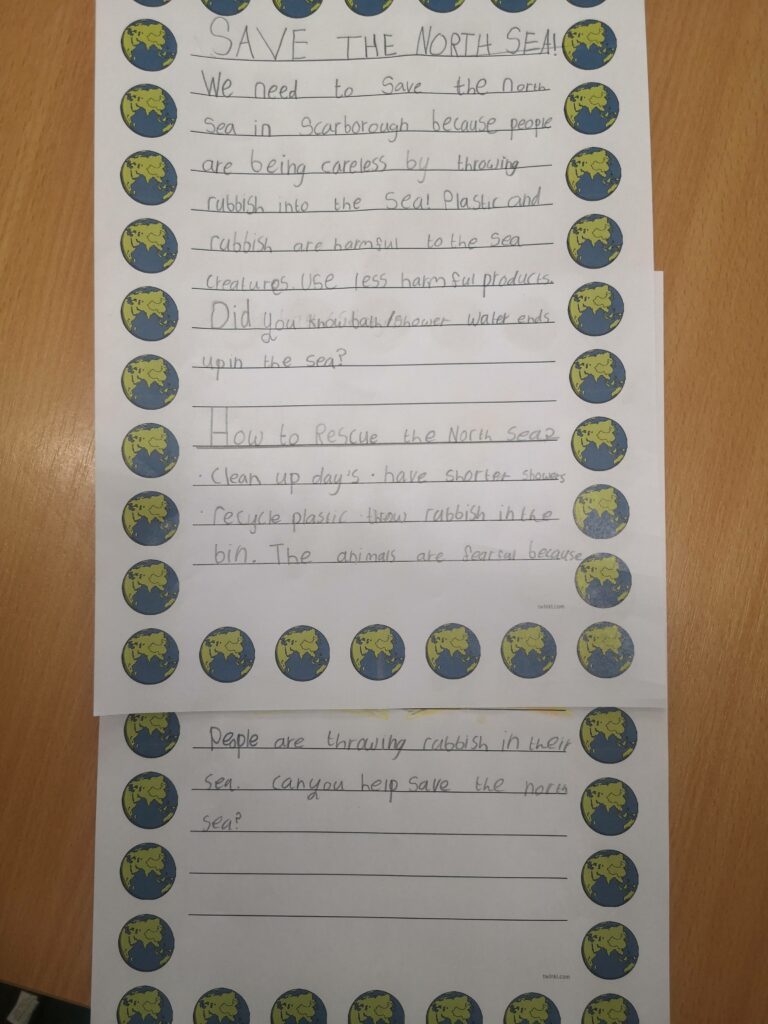 SAVE THE NORTH SEA!
We need to save the north
sea in Scarborough because people
are being careless by throwing
rubbish into the sea! Plastic and
rubbish are harmful to the sea
creatures. Use less harmful products.
Did you know bath/shower water ends
up in the sea?
How to Rescue the North Sea?
· Clean up day's · have shorter showers
· recycle plastic · throw rubbish in the
bin. The animals are fearful because
twinkl.com
People are throwing rubbish in their
sea. can you help save the north
sea?
twinkl.com